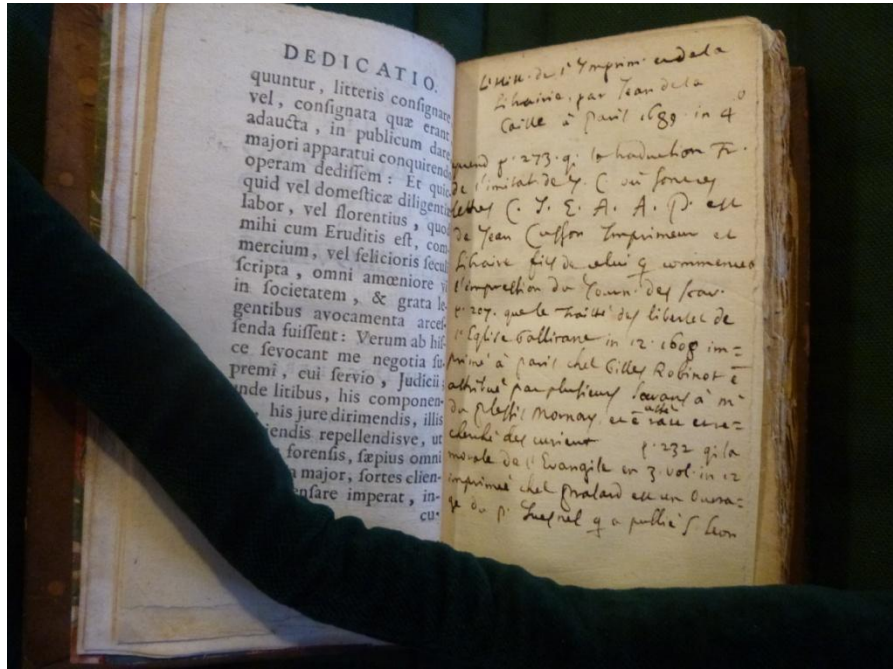 DEDICATIO.
quuntur, litteris consignare
vel, consignata quæ erant
adaucta, in publicum dare
majori apparatui conquirendo
operam dedissem: Et quic
quid vel domesticæ diligentiæ
labor, vel florentius, quod
mihi cum Eruditis est, com
mercium, vel felicioris seculi
scripta, omni amœniore vi
in societatem, & grata le-
gentibus avocamenta arces-
senda fuissent: Verum ab his-
ce sevocant me negotia su-
premi, cui servio, Judicii;
unde litibus, his componen-
his jure dirimendis, illis
repellendisve, ut
forensis, sæpius omni
major, sortes clien-
imperat, in-
cu-
L'hist. de l'Imprim. et de la
Librairie, par Jean de la
Caille à Paris 1689. in 4°
p. 273. q; la traduction Fr.
de l'imitat. de J. C. où sont ces
lettres C. J. E. A. A. P. est
de Jean Cusson Imprimeur et
Libraire fils de celui q commença
l'impression du Journ. des scav.
p. 207. que le traitté des libertez de
l'Eglise Gallicane in 12. 1608 im=
primé à paris chez Gilles Robinot ē
attribué par plusieurs scavans à mr
du plessis Mornay, et ē assé rare et re=
cherché des curieux p. 232 q; la
morale de l'Evangile en 3. vol. in 12
imprimée chez pralard est un Ouvra=
ge du p. Quesnel q a publié S. Leon